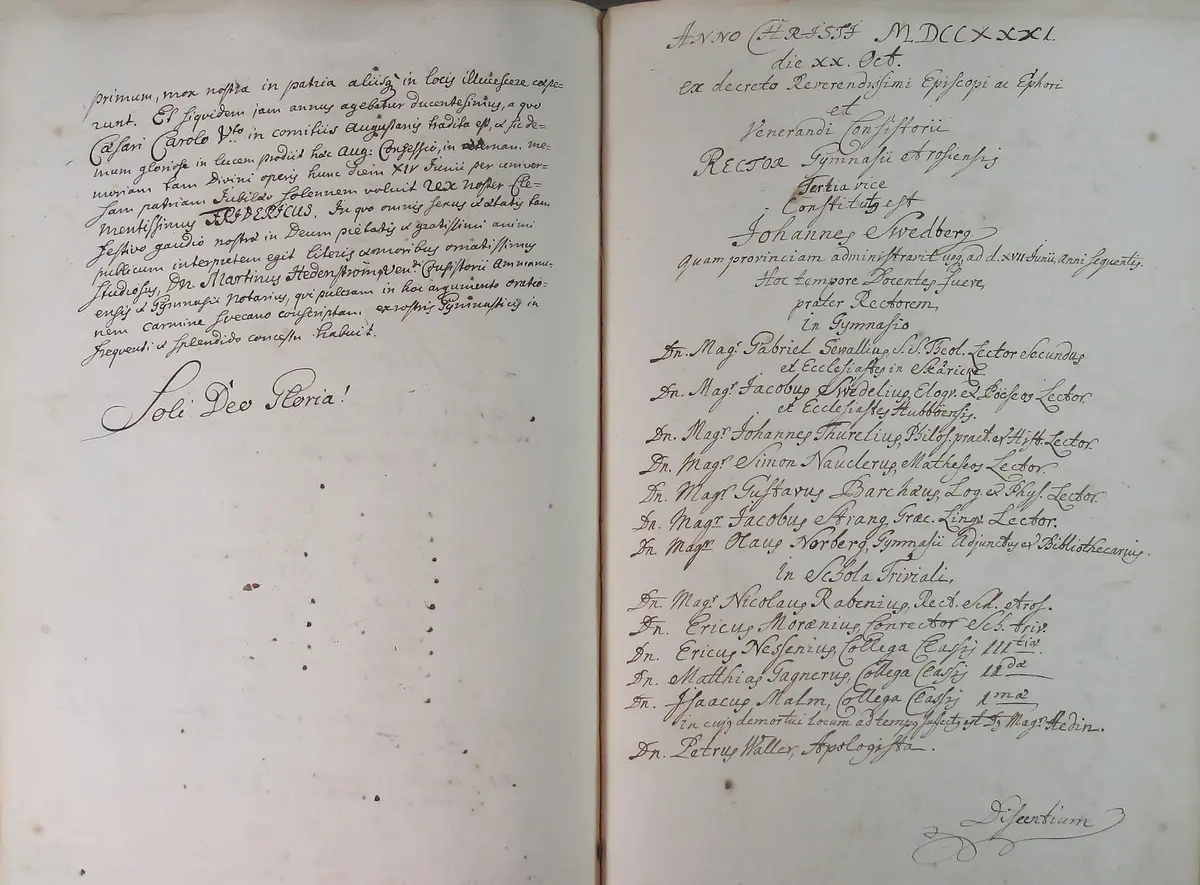 primum, mox nostra in patria aliisq in locis illucescere cœpe-
runt. Et siquidem jam annus agebatur ducentesimus, a quo
Cæsari Carolo V:to in comitiis Augustanis tradita est, & sic de-
mum gloriose in lucem prodiit hæc Aug: Confessio, in æternam me-
moriam tam Divini operis hunc diem XIV Junii per univer-
sam patriam Jubilæo solennem voluit REX noster Cle-
mentissimus FRIDERICUS. In quo omnis sexus & ætatis tam
festivo gaudio nostræ in Deum pietatis & gratissimi animi
publicum interpretem egit literis & moribus ornatissimus
studiosus, Dn. Martinus Hedenström, Ven:di Consistorii Amanu-
ensis & Gymnasii Notarius, qui pulcram in hoc argumento oratio-
nem carmine svecano conscriptam, ex rostris Gymnasticis in
frequenti & splendido concessu habuit.
Soli Deo Gloria!
ANNO CHRISTI MDCCXXXI.
die XX. Oct.
ex decreto Reverendissimi Episcopi ac Ephori
et
Venerandi Consistorii
RECTOR Gymnasii Arosiensis
Tertia vice
Constitutus est
Johannes Swedberg
Quam provinciam administravit usq ad d. XVII Junii, Anni sequentis.
Hoc tempore Docentes fuere,
præter Rectorem,
in Gymnasio
Dn. Mag.r Gabriel Gewallius, S.S. Theol. Lector Secundus
et Ecclesiastes in
Dn. Mag.r Jacobus Swedelius, Eloqv. & Poëseos Lector
et Ecclesiastes Hubboënsis.
Dn. Mag.r Johannes Thurelius, Philos. pract. & Hist. Lector
Dn. Mag.r Simon Nauclerus, Matheseos Lector.
Dn. Mag.r Gustavus Barchæus, Log. & Phys. Lector.
Dn. Mag.r Jacobus Strang, Græc. Lingv. Lector.
Dn. Mag.r Olaus Norberg, Gymnasii Adjunctus & Bibliothecarius.
in Schola Triviali,
Dn. Mag.r Nicolaus Rabenius, Rect. Sch. Aros.
Dn. Ericus Morænius, Conrector Sch. triv.
Dn. Ericus Nessenius, Collega Classis III tiæ
Dn. Matthias Gagnerus, Collega Classis II dæ
Dn. Isaacus Malm, Collega Classis I mæ
in cujus demortui locum ad tempus suffectus est Ds Mag.r Hedin.
Dn. Petrus Waller, Apologista.
Discentium